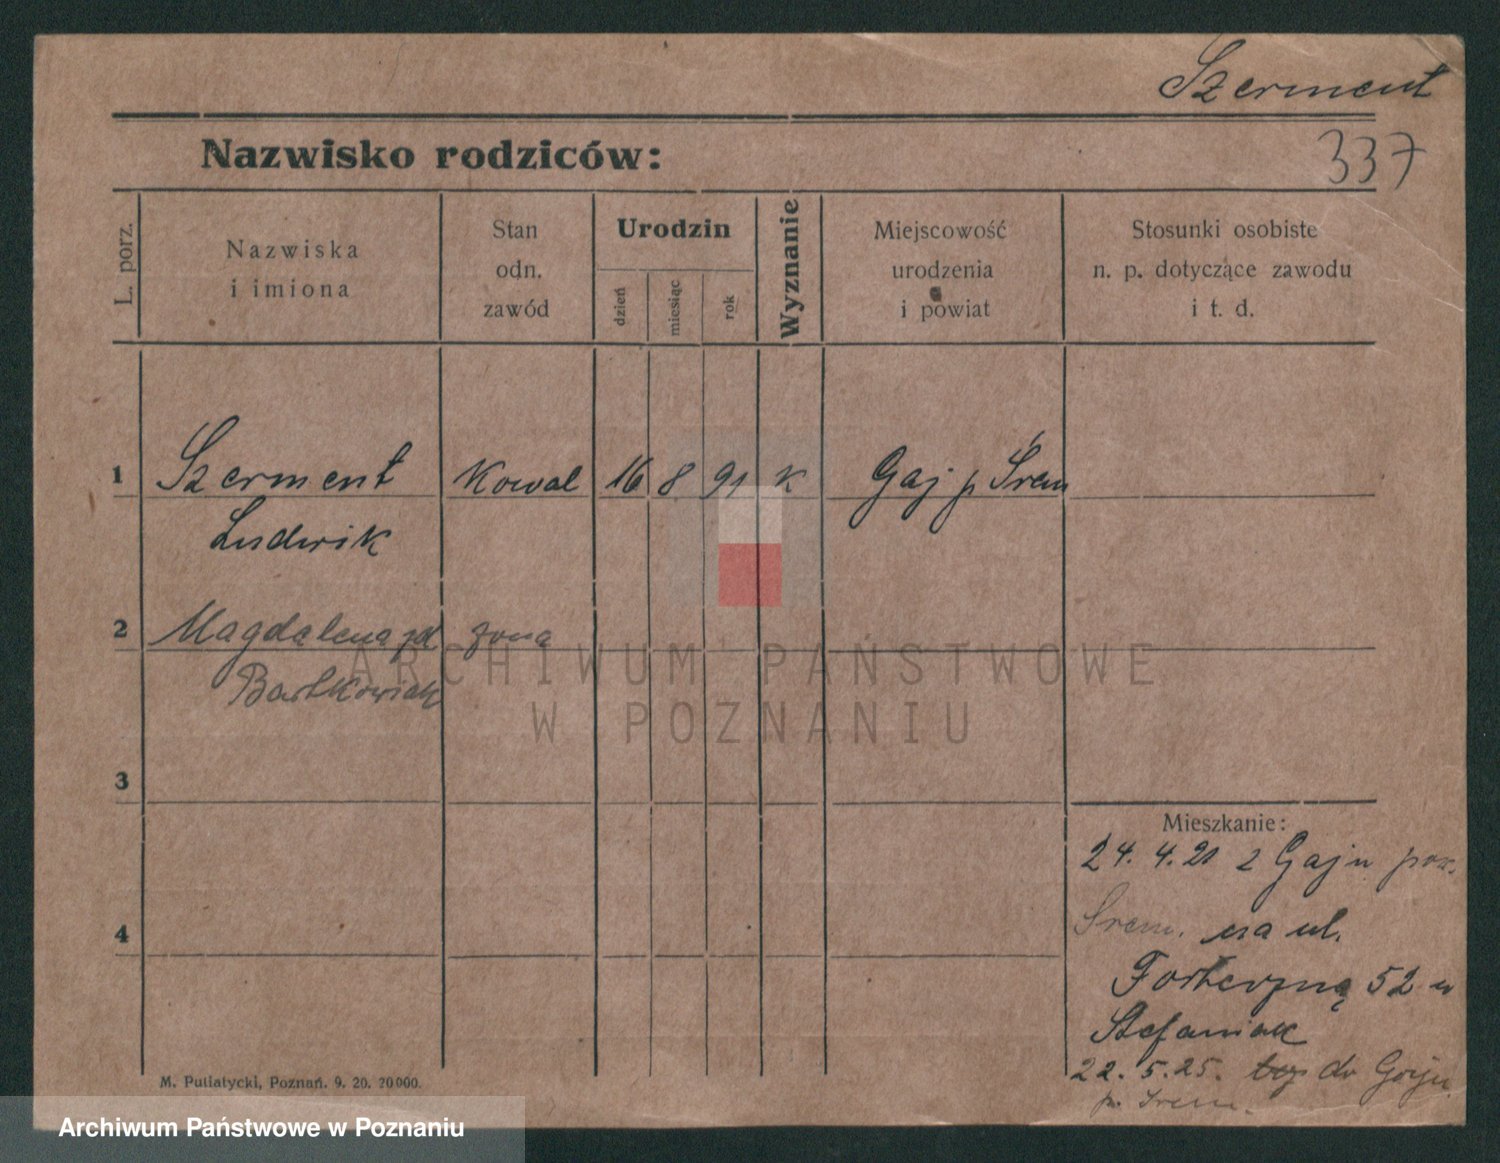 Szerment
Nazwisko rodziców:
337
L. porz.
Nazwiska
i imiona
Stan
odn.
zawód
Urodzin
dzień
miesiąc
rok
Wyznanie
Miejscowość
urodzenia
i powiat
Stosunki osobiste
n. p. dotyczące zawodu
i t. d.
1 Szerment Kowal 16 8 91 K Gaj p Śrem
Ludwik
2 Magdalena zd żona
Bartkowiak
3
4
Mieszkanie:
24. 4. 21 z Gaju pow.
Śrem. na ul.
Forteczną 52 u
Stefaniak
22. 5. 25. do Gaju
p. Śrem.
M. Putiatycki, Poznań. 9. 20. 20000.
ARCHIWUM PAŃSTWOWE
W POZNANIU
Archiwum Państwowe w Poznaniu